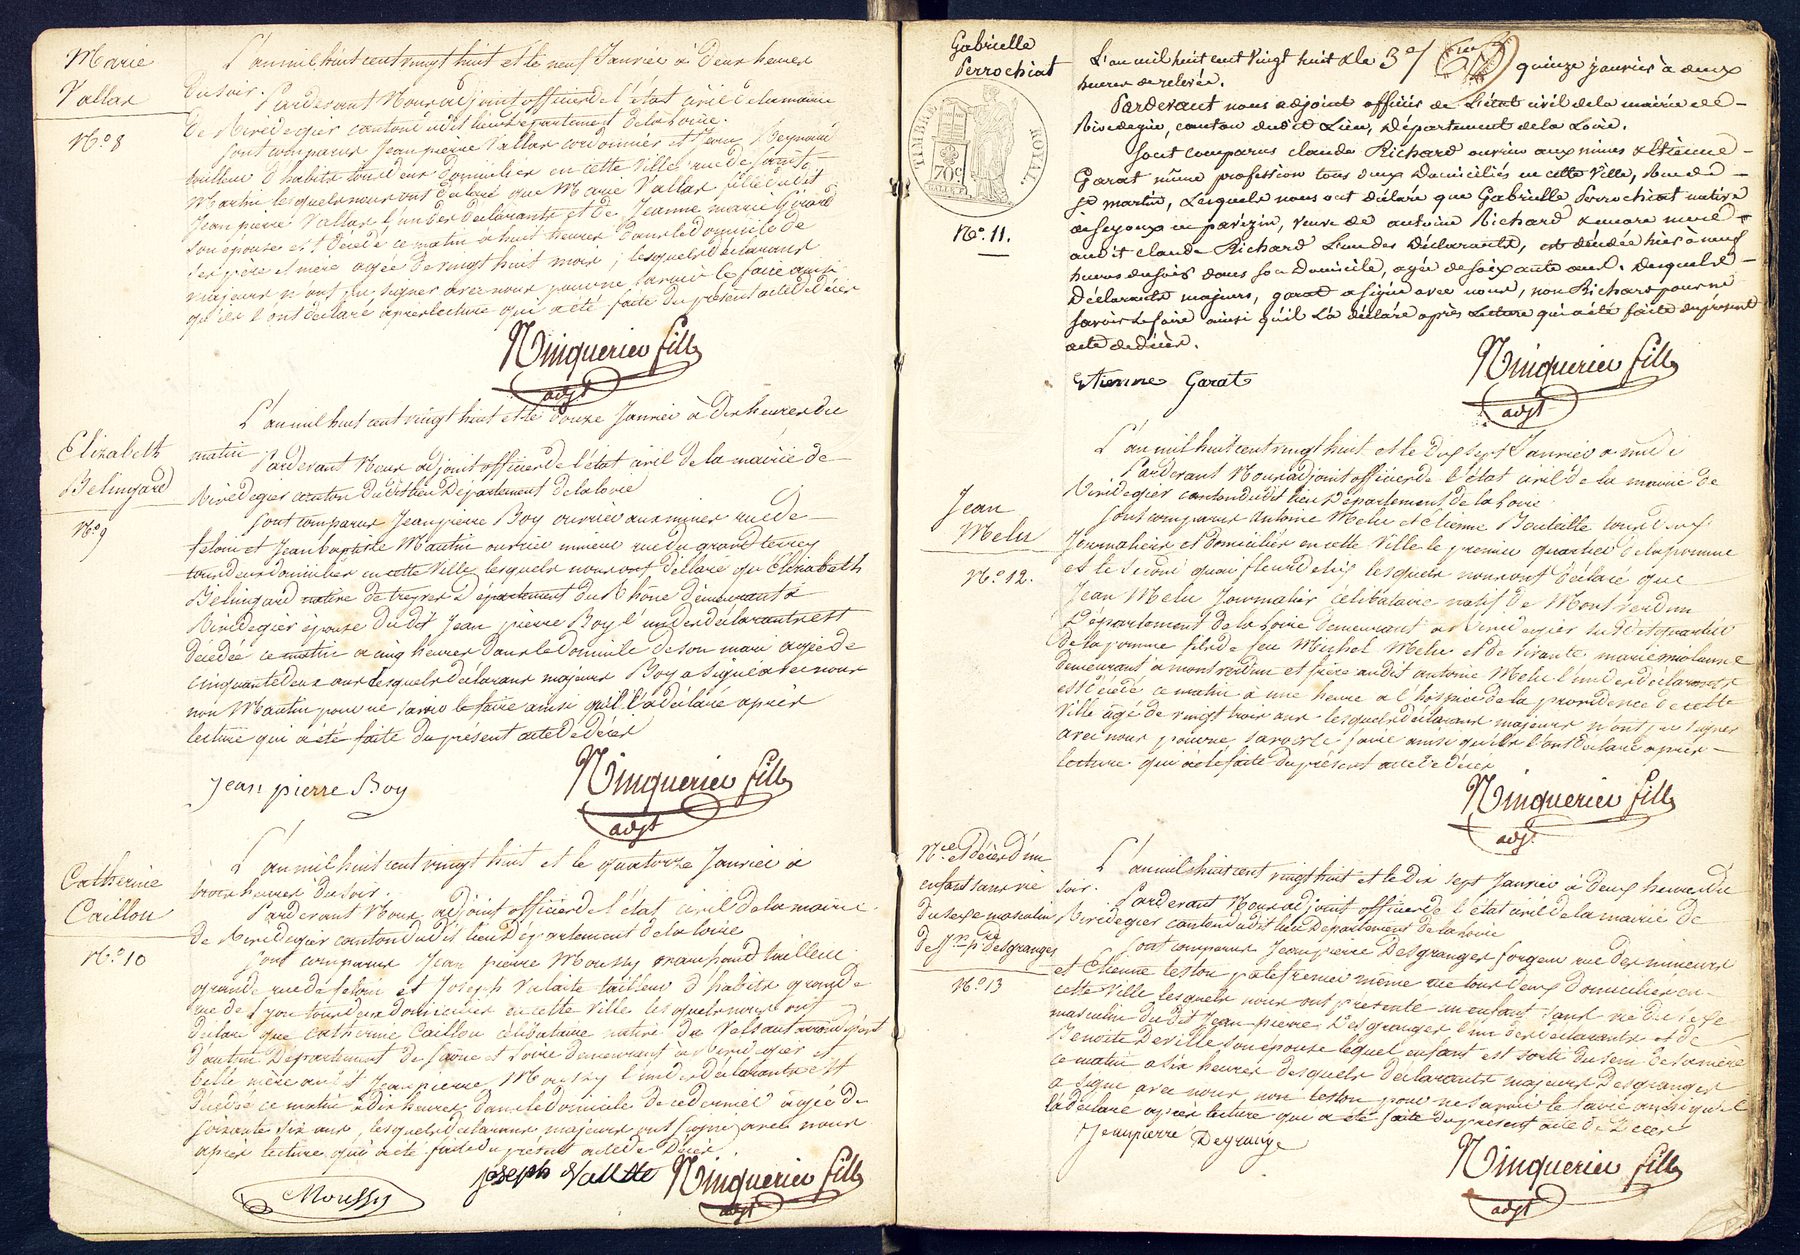 Marie
Vallas
N.º 8
L'an mil huit cent vingt huit et le neuf Janvier à deux heures
du soir. Pardevant Nous adjoint officier de l'état civil de la mairie
de Rivedegier canton dudit lieu Département de la Loire.
Sont comparus Jean pierre Vallas cordonnier et
tailleur d'habits tous deux domiciliés en cette Ville rue de Saint
Martin lesquels nous ont déclaré que Marie Vallas fille dudit
Jean pierre Vallas l'un des déclarants et de Jeanne marie Girard
son épouse est décédé ce matin à huit heures dans le domicile de
ses père et mère agée de vingt huit mois; lesquels déclarans
majeurs n'ont pu signer avec nous pour ne savoir le faire ainsi
qu'ils l'ont déclaré après lecture qui a été faite du présent acte de décès
Ninquerier fils
adjt
Elizabeth
Belingard
Nº 9
L'an mil huit cent vingt huit et le douze Janvier à dix heures du
matin Pardevant Nous adjoint officier de l'état civil de la mairie de
Rivedegier canton dudit lieu Département de la Loire
Sont comparus Jean pierre Boy ouvrier aux mines rue de
feloin et Jean baptiste Mautin ouvrier mineur rue du grand
tous deux domiciliés en cette Ville lesquels nous ont déclaré qu'Elizabeth
Belingard native de treyves Département du Rhone demeurant à
Rivedegier épouse dudit Jean pierre Boy l'un des déclarants est
décédée ce matin à cinq heures dans le domicile de son mari agée de
cinquante deux ans lesquels déclarans majeurs Boy a signé avec nous
non Mautin pour ne savoir le faire ainsi qu'il l'a déclaré après
lecture qui a été faite du présent acte de décès
Jean pierre Boy
Ninquerier fils
adjt
Catherine
Caillou
N.º 10
L'an mil huit cent vingt huit et le quatorze Janvier à
trois heures du soir.
Pardevant Nous adjoint officier de l'état civil de la mairie
de Rivedegier canton dudit lieu Département de la Loire
Sont comparus Jean pierre Moussy marchand tailleur
grande rue de feloin et Joseph Valaite tailleur d'habits grande
rue de Lyon tous deux domiciliés en cette Ville lesquels nous ont
déclaré que Catherine Caillou célibataire native du
d'autun Département de Saone et Loire demeurant à Rivedegier et
belle mère audit Jean pierre Moussy l'un des déclarants est
décédée ce matin à dix heures dans le domicile de ce dernier agée de
soixante six ans, lesquels déclarans majeurs ont signé avec nous
après lecture qui a été faite du présent acte de Décès
Moussy
Joseph Vallette
Ninquerier fils
adjt
Gabrielle
Perrochiat
TIMBRE ROYAL.
70c
N.º 11.
L'an mil huit cent vingt huit & le quinze janvier à deux
heures de relevée.
Pardevant nous adjoint officier de l'état civil de la mairie de
Rivedegier, canton dudit Lieu, Département de la Loire.
Sont comparus claude Richard ouvrier aux mines & Etienne
Garat même profession tous deux Domiciliés en cette Ville, Rue de
St martin, Lesquels nous ont déclaré que Gabrielle Perrochiat native
veuve de antoine Richard & encore mere
audit claude Richard L'un des Déclarants, est décédée hier à neuf
heures du soir dans son Domicile, agée de soixante ans. Desquels
Déclarants majeurs, garat a signé avec nous, non Richard pour ne
savoir le faire ainsi qu'il l'a déclaré après Lecture qui a été faite du présent
acte de décès.
Etienne Garat
Ninquerier fils
adjt
Jean
Melu
N.º 12.
L'an mil huit cent vingt huit et le dix sept Janvier à midi
Pardevant Nous adjoint officier de l'état civil de la mairie de
Rivedegier canton dudit lieu Département de la Loire
Sont comparus Antoine Melu et Etienne Bouteille tous deux
Journaliers et domiciliés en cette Ville le premier quartier de la pomme
et le second quai fleur de lis lesquels nous ont déclaré que
Jean Melu Journalier célibataire natif de Montverdun
Département de la Loire demeurant à Rivedegier susdit quartier
de la pomme fils de feu Michel Melu et de vivante marie
demeurant à montverdun et frère audit antoine Melu l'un des déclarants
est décédé ce matin à une heure à l'hospice de la providence de cette
Ville agé de vingt trois ans. lesquels déclarans majeurs n'ont pu signer
avec nous pour ne savoir le faire ainsi qu'ils l'ont déclaré après
lecture qui a été faite du présent acte de décès
Ninquerier fils
adjt
Nce et décès d'un
enfant sans vie
du sexe masculin
de Jn pre desgranges
N.º 13
L'an mil huit cent vingt huit et le dix sept Janvier à deux heures du
soir. Pardevant Nous adjoint officier de l'état civil de la mairie de
Rivedegier canton dudit lieu Département de la Loire
Sont comparus Jean pierre Desgranges forgeur rue des mineurs
et Etienne teston palefrenier même rue tous deux domiciliés en
cette Ville lesquels nous ont présenté un enfant sans vie du sexe
masculin dudit Jean pierre Desgranges l'un des déclarants et de
Benoite Deville son épouse lequel enfant est sorti du sein de sa mère
ce matin à six heures desquels déclarants majeurs Desgranges
a signé avec nous, non teston pour ne savoir le faire ainsi qu'il
l'a déclaré après lecture qui a été faite du présent acte de décès
Jeanpierre Degrange
Ninquerier fils
adjt